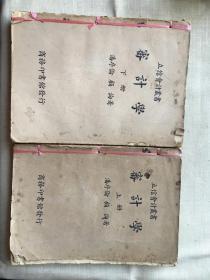 立信會計叢書
審計學
下册
潘序倫 顧詢著
商務印書館發行
立信會計叢書
審計學
上册
潘序倫 顧詢著
商務印書館發行